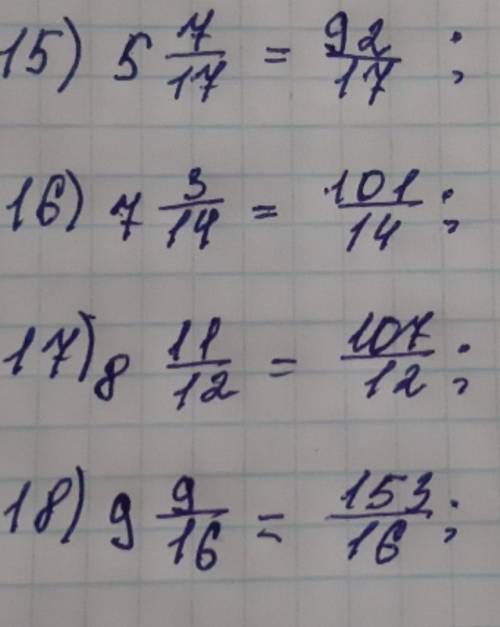 15) 5 7/17 = 92/17 ;
16) 7 3/14 = 101/14 ;
17) 8 11/12 = 107/12 ;
18) 9 9/16 = 153/16 ;